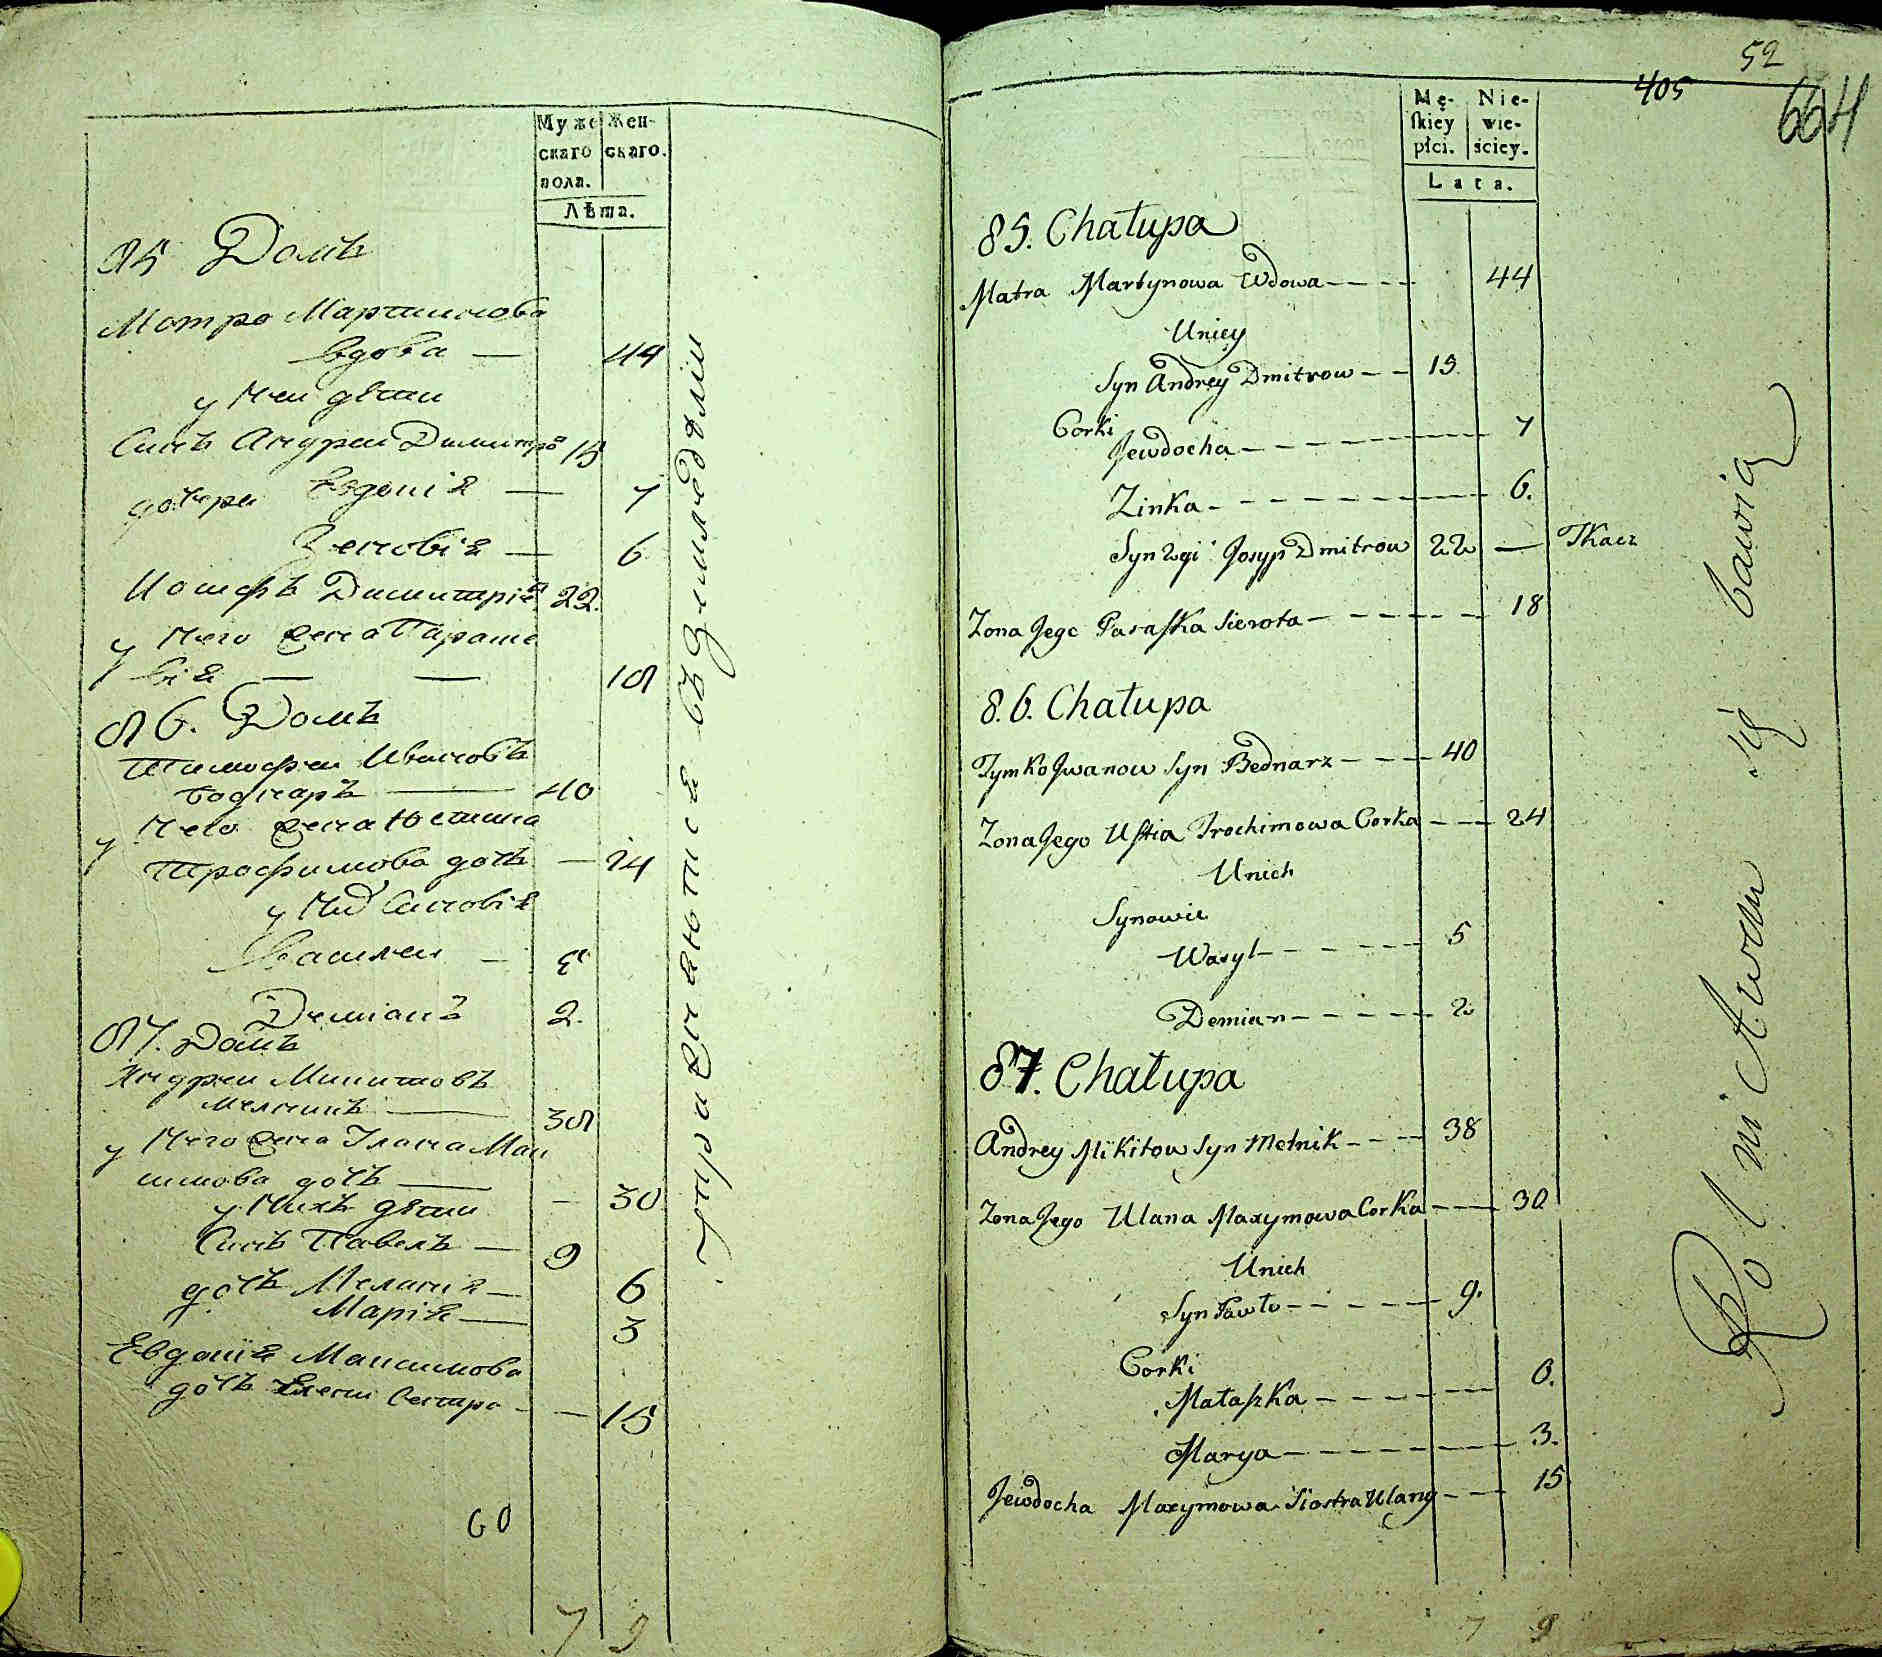 Муже
скаго
пола.
Жен-
скаго.
Лѣта.
85 Домъ
Матро Мартинова
вдова — 44
у Неи дѣти
Синъ Андреи Димитро 15
дочери Евдокіа — 7
Зеновіа — 6
Иосифъ Димитріе 22.
у Него жена Параске
віа — — 18
86. Домъ
Тимофеи Ивановъ
боднаръ — 40
у Него жена Юстина
Трофимова дочъ — 24
у Них Синовіа
Василеи — 5
Демианъ 2.
87. Домъ
Андреи Микитовъ
мелникъ — 38
у Него жена Улана Мак
симова дочъ —
у Нихъ дѣти — 30
Синъ Павелъ — 9
дочъ Меланиа — 6
Мариа — 3
Евдокиа Максимова
дочъ Елени Сестра — 15
60
7 9
упражнаютса въ Земледѣли
52
405
664
Mę-
skiey
płci.
Nie-
wie-
ściey.
Lata.
85. Chałupa
Matra Martynowa Wdowa - - - - 44
Uniey
Syn Andrey Dmitrow - - 15
Corki
Jewdocha - - - - - - 7
Zinka - - - - - - 6.
Syn 2gi Josyp Dmitrow 22 — Tkacz
Zona Jego Paraska Sierota - - - - - - 18
8.6. Chałupa
Tymko Jwanow Syn Bednarz - - - - 40
Zona Jego Ustia Trochimowa Corka - - - 24
Unich
Synowie
Wasyl - - - - - - 5
Demian - - - - - 2
87. Chałupa
Andrey Mikitow Syn Melnik - - - - 38
Zona Jego Ulana Maxymowa Corka - - - 30
Unich
Syn Pawło - - - - - 9.
Corki
Małaszka - - - - - - 6.
Marya - - - - - - - 3.
Jewdocha Maxymowa Siostra Ulany - - - 15
7 9
Rolnictwem się bawią